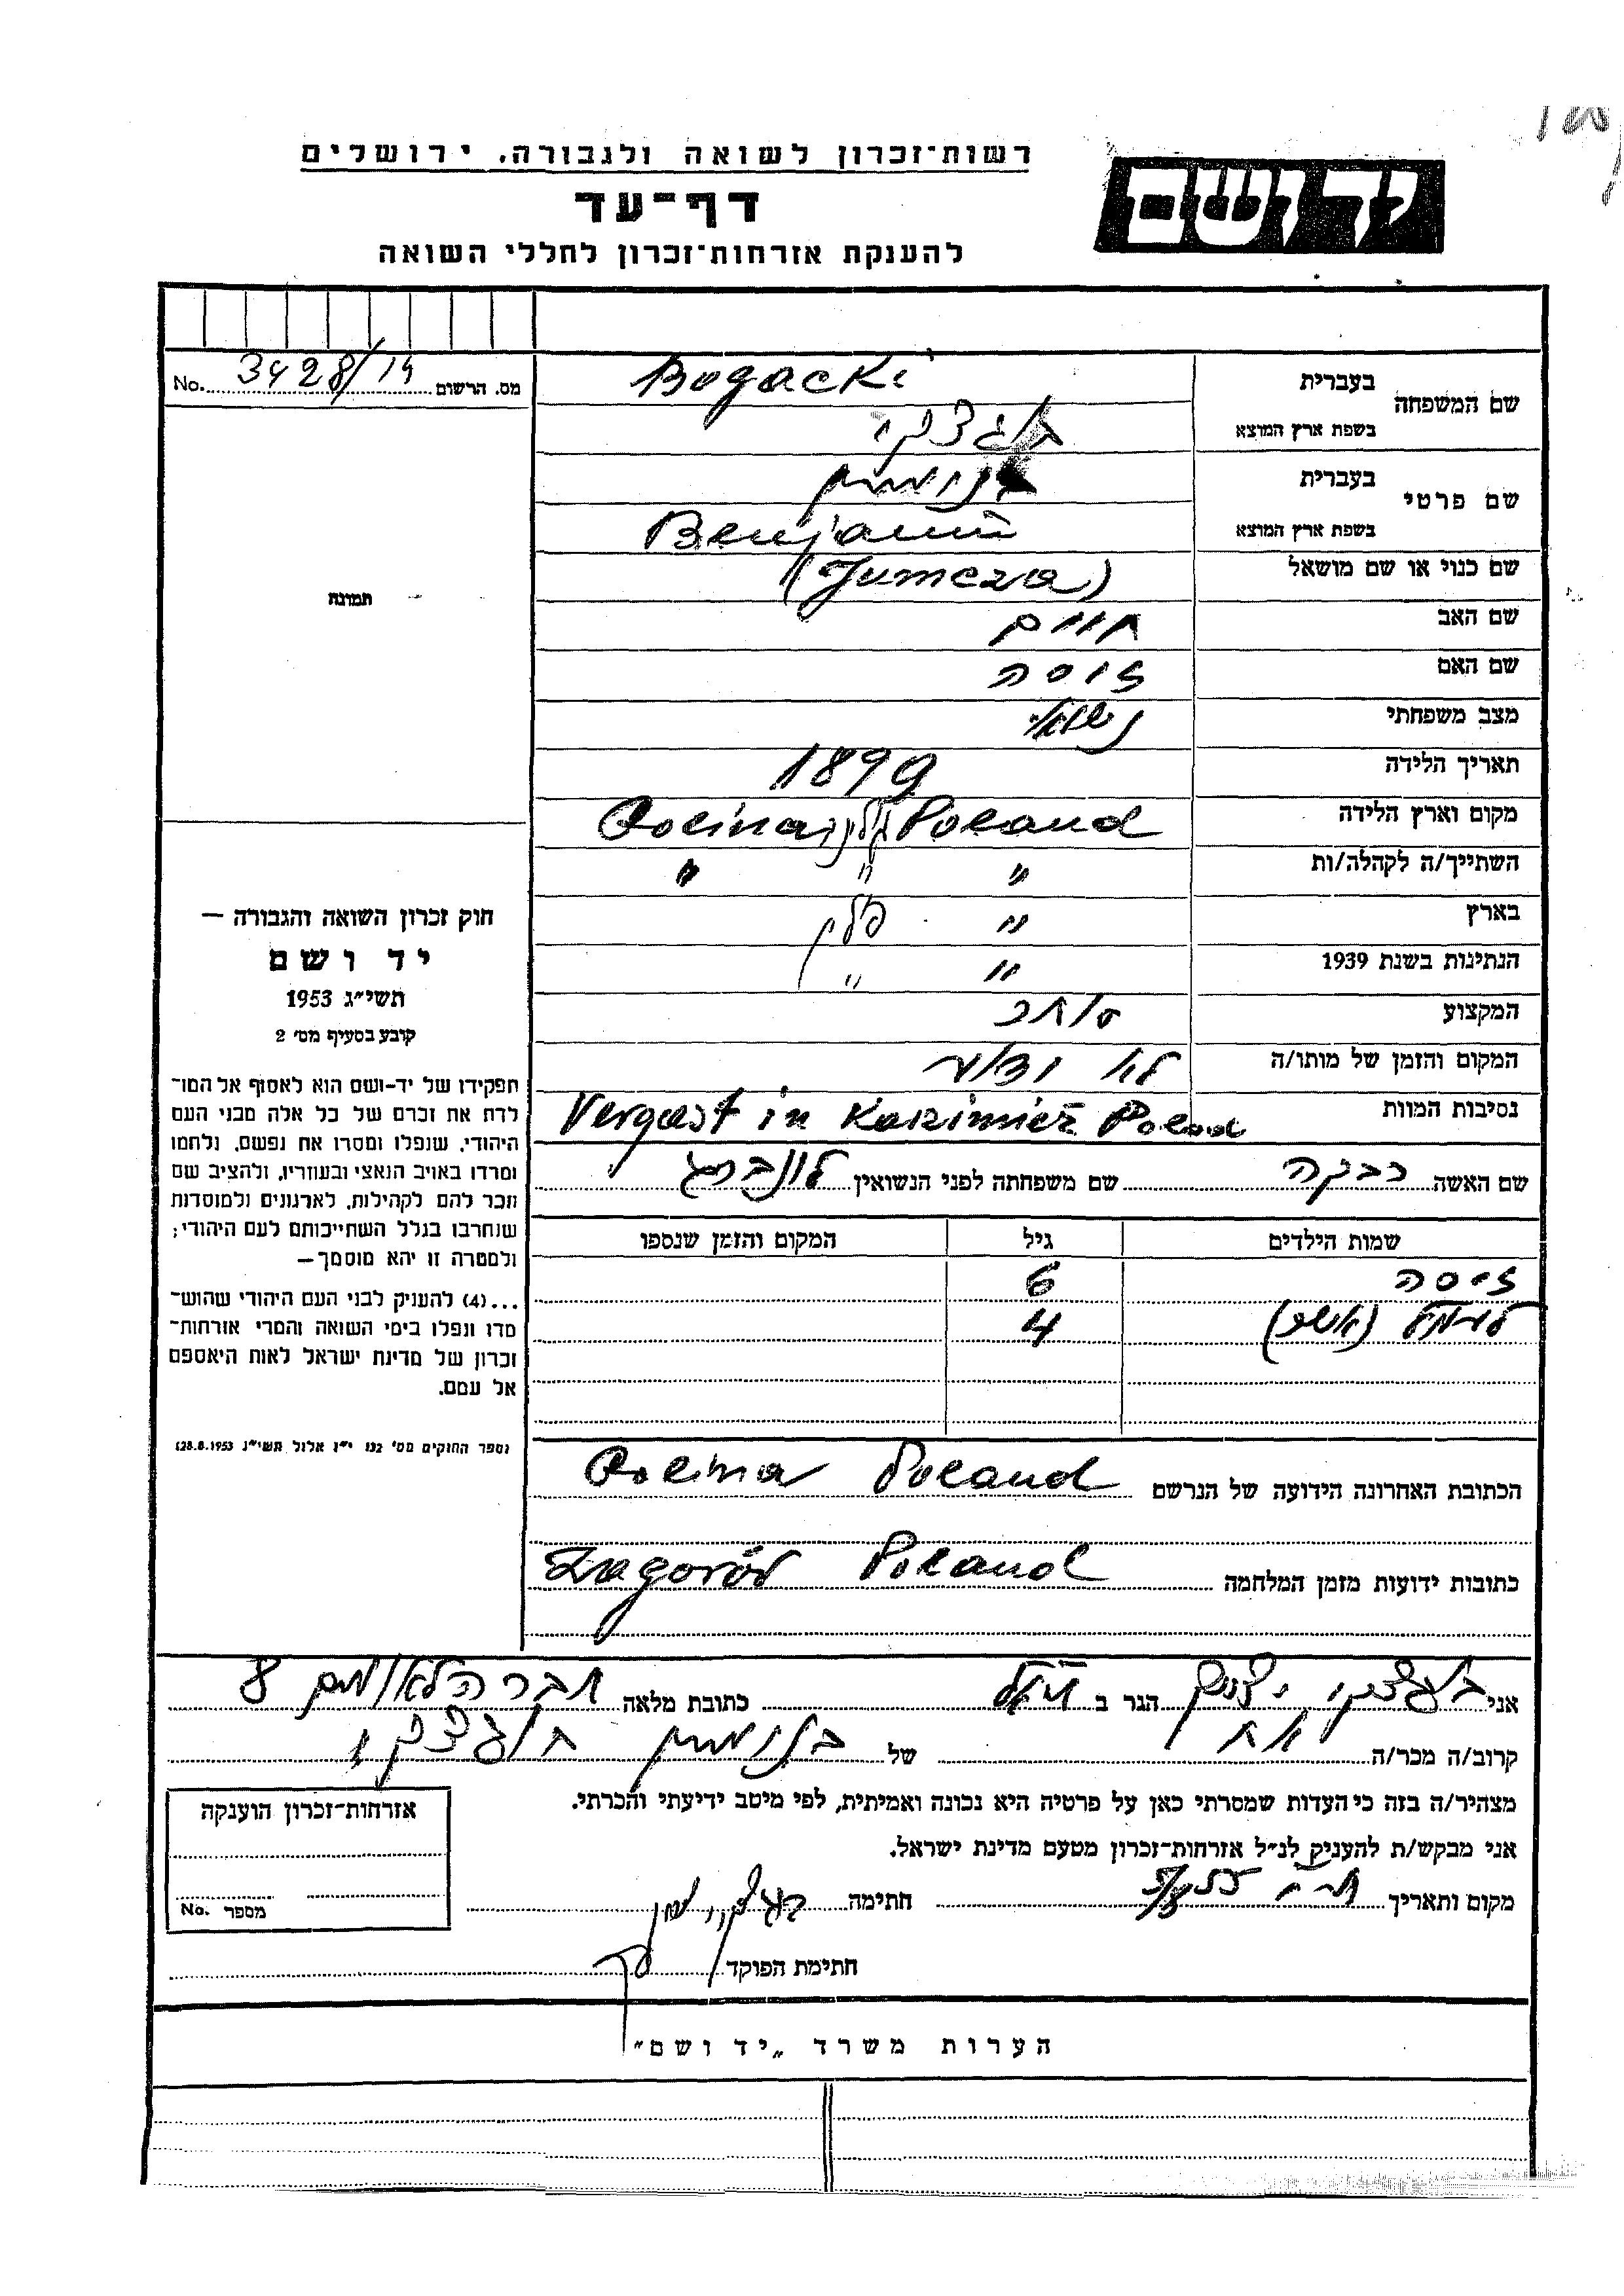 רשות־זכרון לשואה ולגבורה, ירושלים
דף־עד
להענקת אזרחות־זכרון לחללי השואה
יד ושם
מס. הרשום 3428/14 No.
שם המשפחה
בעברית
Bogacki
בשפת ארץ המוצא
בוגצקי
שם פרטי
בעברית
בנימין
בשפת ארץ המוצא
Benjamin
שם כנוי או שם מושאל
שם האב חיים
שם האם זיסה
מצב משפחתי נשוי
תאריך הלידה 1899
מקום וארץ הלידה Golina גולינה Poland
השתייך/ה לקהלה/ות " " "
בארץ " פולין
הנתינות בשנת 1939 " "
המקצוע סוחר
המקום והזמן של מותו/ה לא ידוע
נסיבות המוות Vergast in Kazimież Poland
שם האשה רבקה שם משפחתה לפני הנשואין
שמות הילדים גיל המקום והזמן שנספו
זיסה 6
4
הכתובת האחרונה הידועה של הנרשם Golina Poland
כתובות ידועות מזמן המלחמה Zagorów Poland
תמונה
חוק זכרון השואה והגבורה —
יד ושם
תשי״ג 1953
קובע בסעיף מס׳ 2
תפקידו של יד-ושם הוא לאסוף אל המו־
לדת את זכרם של כל אלה מבני העם
היהודי, שנפלו ומסרו את נפשם, נלחמו
ומרדו באויב הנאצי ובעוזריו, ולהציב שם
וזכר להם לקהילות, לארגונים ולמוסדות
שנחרבו בגלל השתייכותם לעם היהודי;
ולמטרה זו יהא מוסמך—
...(4) להעניק לבני העם היהודי שהוש־
מדו ונפלו בימי השואה והמרי אזרחות־
זכרון של מדינת ישראל לאות היאספם
אל עמם.
(ספר החוקים מס׳ 132 י״ז אלול תשי״ג 28.8.1953)
אני בוגצקי יצחק הגר ב כתובת מלאה חבר הלאומים 8
קרוב/ה מכר/ה אח של בנימין בוגצקי
מצהיר/ה בזה כי העדות שמסרתי כאן על פרטיה היא נכונה ואמיתית, לפי מיטב ידיעתי והכרתי.
אני מבקש/ת להעניק לנ״ל אזרחות־זכרון מטעם מדינת ישראל.
מקום ותאריך חתימה
חתימת הפוקד
אזרחות־זכרון הוענקה
מספר No.
הערות משרד „יד ושם״